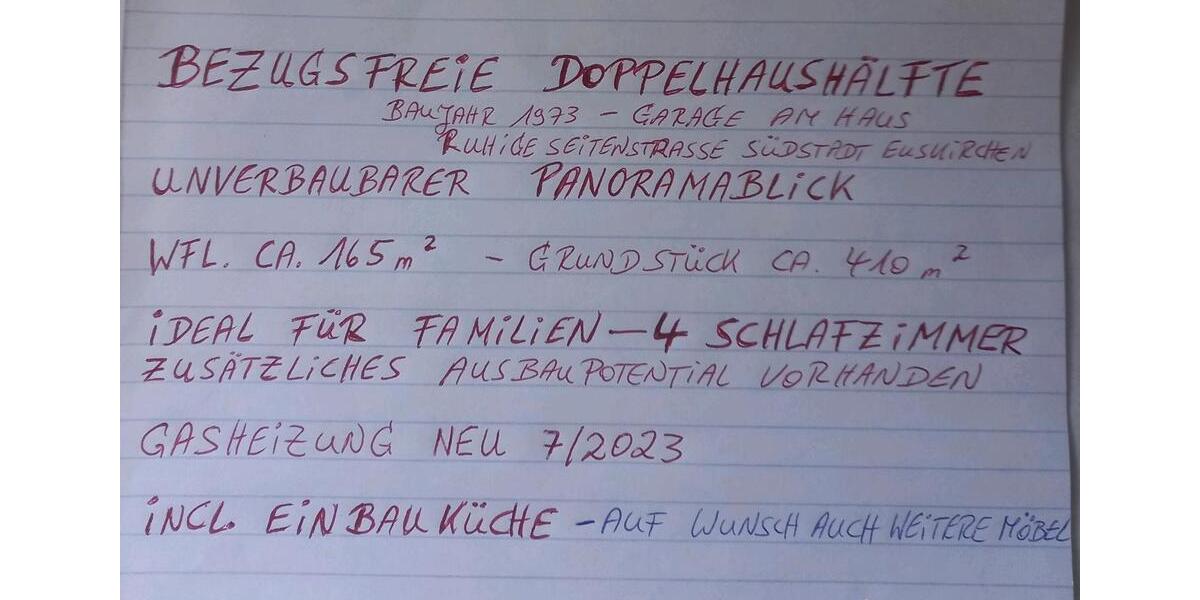 BEZUGSFREiE DOPPELHAUSHÄLFTE
BAUJAHR 1973 – GARAGE AM HAUS
RUHiGE SEiTENSTRASSE SÜDSTADT EUSKiRCHEN
UNVERBAUBARER PANORAMABLiCK
WFL. CA. 165 m² – GRUNDSTÜCK CA. 410 m²
iDEAL FÜR FAMiLiEN – 4 SCHLAFZiMMER
ZUSÄTZLiCHES AUSBAUPOTENTiAL VORHANDEN
GASHEiZUNG NEU 7/2023
iNCL. EiNBAUKÜCHE – AUF WUNSCH AUCH WEiTERE MÖBEL